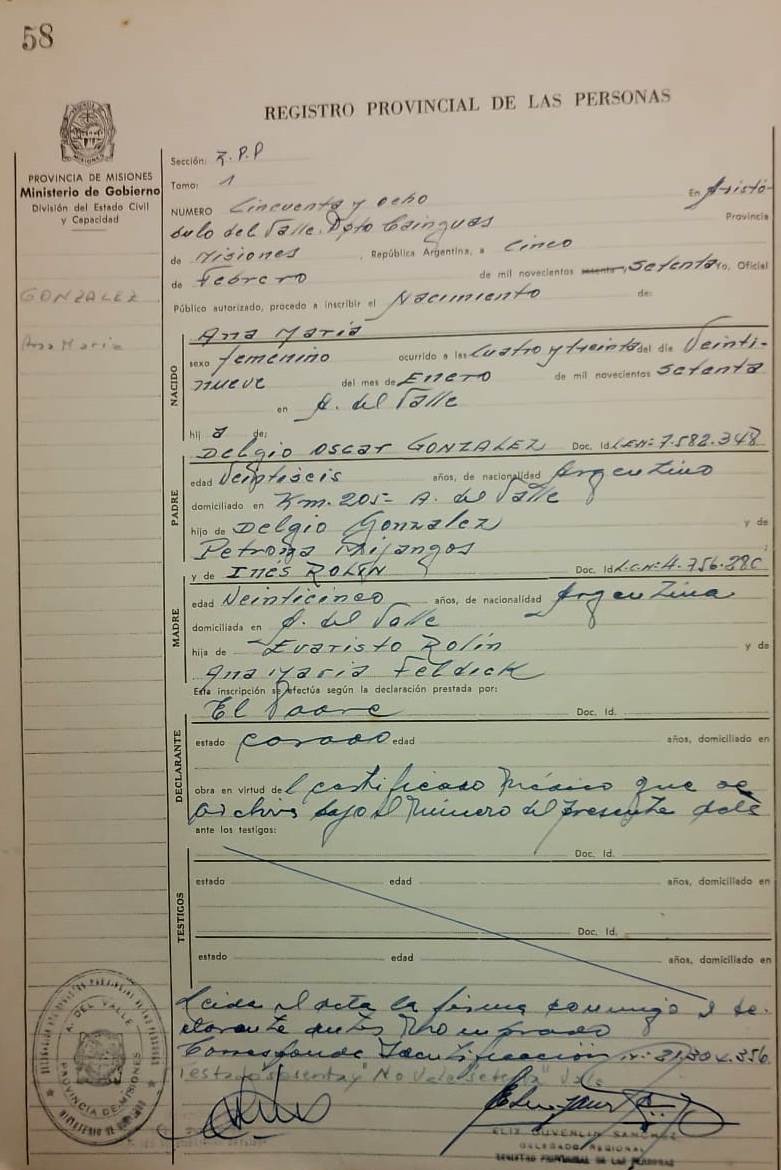 58
REGISTRO PROVINCIAL DE LAS PERSONAS
PROVINCIA DE MISIONES
Ministerio de Gobierno
División del Estado Civil
y Capacidad
GONZALEZ
Ana Maria
Sección: R.P.P
Tomo: 1
NUMERO Cincuenta y ocho En Aristó-
bulo del Valle. Dpto Cainguas Provincia
de Misiones, República Argentina, a cinco
de Febrero de mil novecientos sesenta, setenta yo, Oficial
Público autorizado, procedo a inscribir el Nacimiento de:
NACIDO
Ana Maria
sexo femenino ocurrido a las cuatro y treinta del día Veinti-
nueve del mes de Enero de mil novecientos setenta
en A. del Valle
hija de:
DELGIO OSCAR GONZALEZ Doc. Id. L.E.Nº 7.582.348
PADRE
edad Veintiseis años, de nacionalidad Argentino
domiciliado en Km. 205- A. del Valle
hijo de Delgio Gonzalez y de
Petrona Mijangos
y de INÉS ROLÍN Doc. Id. L.C.Nº 4.756.280
MADRE
edad Veinticinco años, de nacionalidad Argentina
domiciliada en A. del Valle
hija de Evaristo Rolín y de
Ana Maria Feldick
Esta inscripción se efectúa según la declaración prestada por:
DECLARANTE
El Padre Doc. Id.
estado casado edad años, domiciliado en
obra en virtud del certificado Médico que se
archiva bajo el número del presente acta
ante los testigos:
TESTIGOS
Doc. Id.
estado edad años, domiciliado en
Doc. Id.
estado edad años, domiciliado en
Leída el acta la firma conmigo el de-
clarante antes nombrado
Corresponde Identificación Nº 21.304.356
Testado "sesenta" No Vale "setenta" Vale
A. DEL VALLE
PROVINCIA DE MISIONES
DELEGADO REGIONAL
REGISTRO PROVINCIAL DE LAS PERSONAS